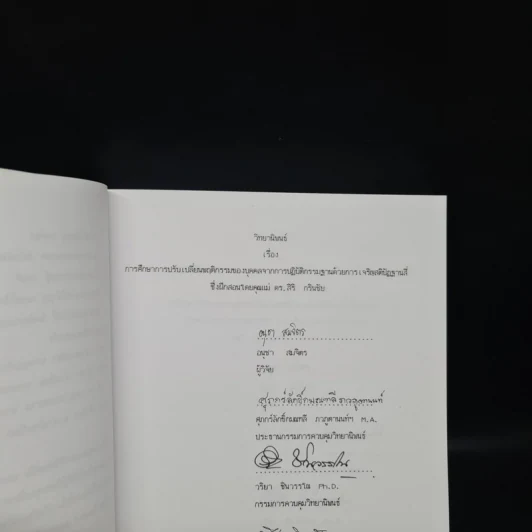 วิทยานิพนธ์
เรื่อง
การศึกษาการปรับเปลี่ยนพฤติกรรมของบุคคลจากการปฏิบัติกรรมฐานด้วยการเจริญสติปัฏฐานสี่
ซึ่งฝึกสอนโดยคุณแม่ ดร.สิริ กรินชัย
อนุชา สมจิตร
อนุชา สมจิตร
ผู้วิจัย
M.A.
ประธานกรรมการควบคุมวิทยานิพนธ์
วริยา ชินวรรโณ Ph.D.
กรรมการควบคุมวิทยานิพนธ์